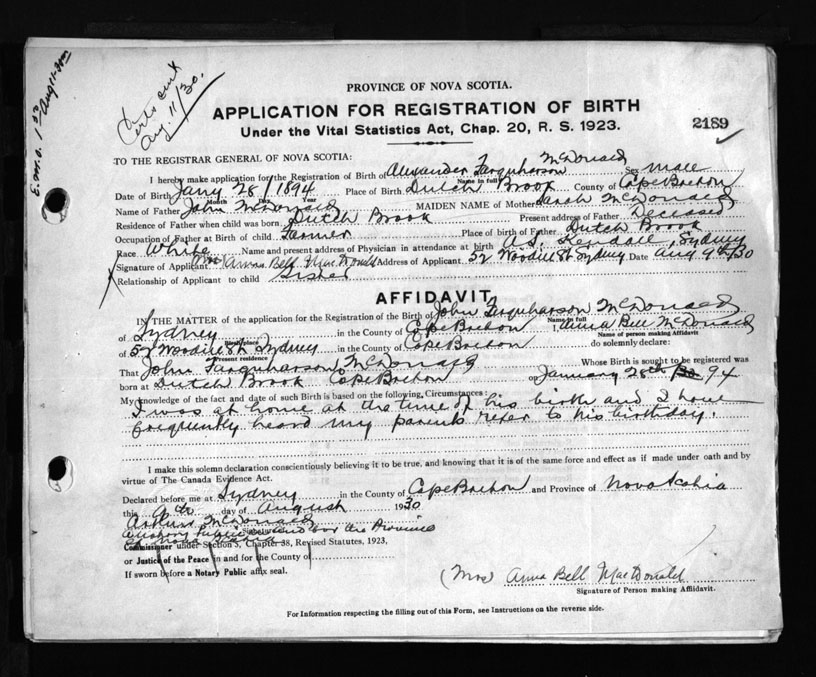 Certs sent
Aug. 11/30.
PROVINCE OF NOVA SCOTIA.
APPLICATION FOR REGISTRATION OF BIRTH
Under the Vital Statistics Act, Chap. 20, R. S. 1923.
2189
TO THE REGISTRAR GENERAL OF NOVA SCOTIA:
I hereby make application for the Registration of Birth of Alexander Farquharson McDonald Sex male
Name in full
Date of Birth Jany 28/1894 Place of Birth Dutch Brook County of Cape Breton
Day Year
Name of Father John McDonald MAIDEN NAME of Mother Sarah McDonald
Residence of Father when child was born Dutch Brook Present address of Father Deceased
Occupation of Father at Birth of child Farmer Place of birth of Father Dutch Brook
Race White Name and present address of Physician in attendance at birth A.S. Kendall, Sydney
Signature of Applicant Mrs Anna Bell MacDonald Address of Applicant 52 Woodill St Sydney Date Aug 9th/30
Relationship of Applicant to child Sister
AFFIDAVIT
IN THE MATTER of the application for the Registration of the Birth of John Farquharson McDonald
Name in full
of Sydney in the County of Cape Breton I, Anna Bell McDonald
Birthplace Name of person making Affidavit
of 52 Woodill St Sydney in the County of Cape Breton do solemnly declare:
Present residence
That John Farquharson McDonald Whose Birth is sought to be registered was
born at Dutch Brook Cape Breton on January 28th 94
My knowledge of the fact and date of such Birth is based on the following, Circumstances:
I was at home at the time of his birth and I have
frequently heard my parents refer to his birthday.
I make this solemn declaration conscientiously believing it to be true, and knowing that it is of the same force and effect as if made under oath and by
virtue of The Canada Evidence Act.
Declared before me at Sydney in the County of Cape Breton and Province of Nova Scotia
this 9th day of August 1930
Arthur McDonald
Signature
a Notary Public in and for the Province
of Nova Scotia
Commissioner under Section 5, Chapter 38, Revised Statutes, 1923,
or Justice of the Peace in and for the County of
If sworn before a Notary Public affix seal.
(Mrs) Anna Bell MacDonald
Signature of Person making Affidavit.
For Information respecting the filling out of this Form, see Instructions on the reverse side.